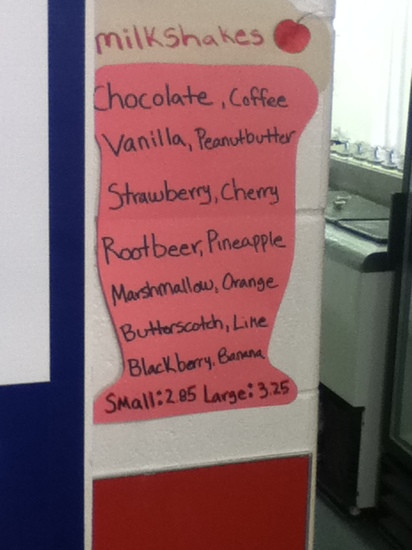 milkshakes
Chocolate, Coffee
Vanilla, Peanutbutter
Strawberry, Cherry
Rootbeer, Pineapple
Marshmallow, Orange
Butterscotch, Lime
Blackberry, Banana
Small: 2.85 Large: 3.25